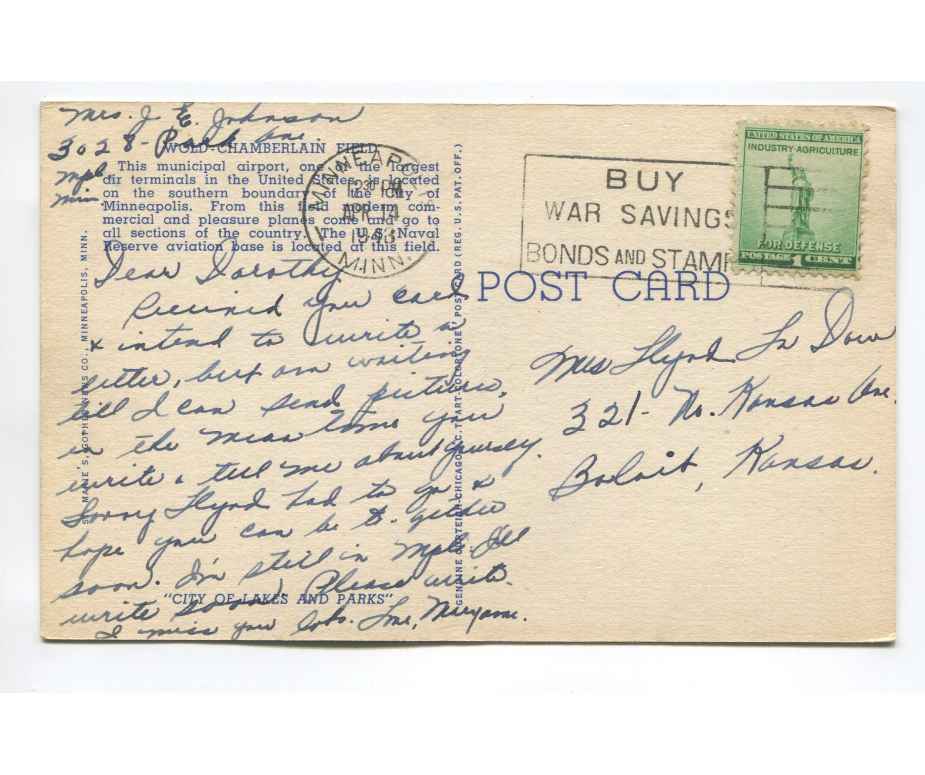 Mrs. J. E. Johnson
3028 - Park Ave.
Mpls
Minn.
WOLD-CHAMBERLAIN FIELD
This municipal airport, one of the largest
air terminals in the United States, is located
on the southern boundary of the City of
Minneapolis. From this field modern com-
mercial and pleasure planes come and go to
all sections of the country. The U.S. Naval
Reserve aviation base is located at this field.
Dear Dorothy
Received your card
& intend to write a
letter, but am waiting
till I can send picture,
in the mean time you
write & tell me about yourself.
Sorry Flynd had to go &
hope you can be to gether
soon. I'm still in Mpls. I'll
write soon. Please write.
I miss you lots. Love, Maryane.
"CITY OF LAKES AND PARKS"
CO., MINNEAPOLIS, MINN.
GENUINE CURTEICH-CHICAGO "C.T. ART-COLORTONE" POST CARD (REG. U.S. PAT. OFF.)
MINNEAPOLIS
PM
APR 14
1943
MINN.
BUY
WAR SAVINGS
BONDS AND STAMPS
UNITED STATES OF AMERICA
INDUSTRY-AGRICULTURE
FOR DEFENSE
POSTAGE 1 CENT
POST CARD
Mrs Flynd La Dow
321 - No. Kansas Ave.
Beloit, Kansas.